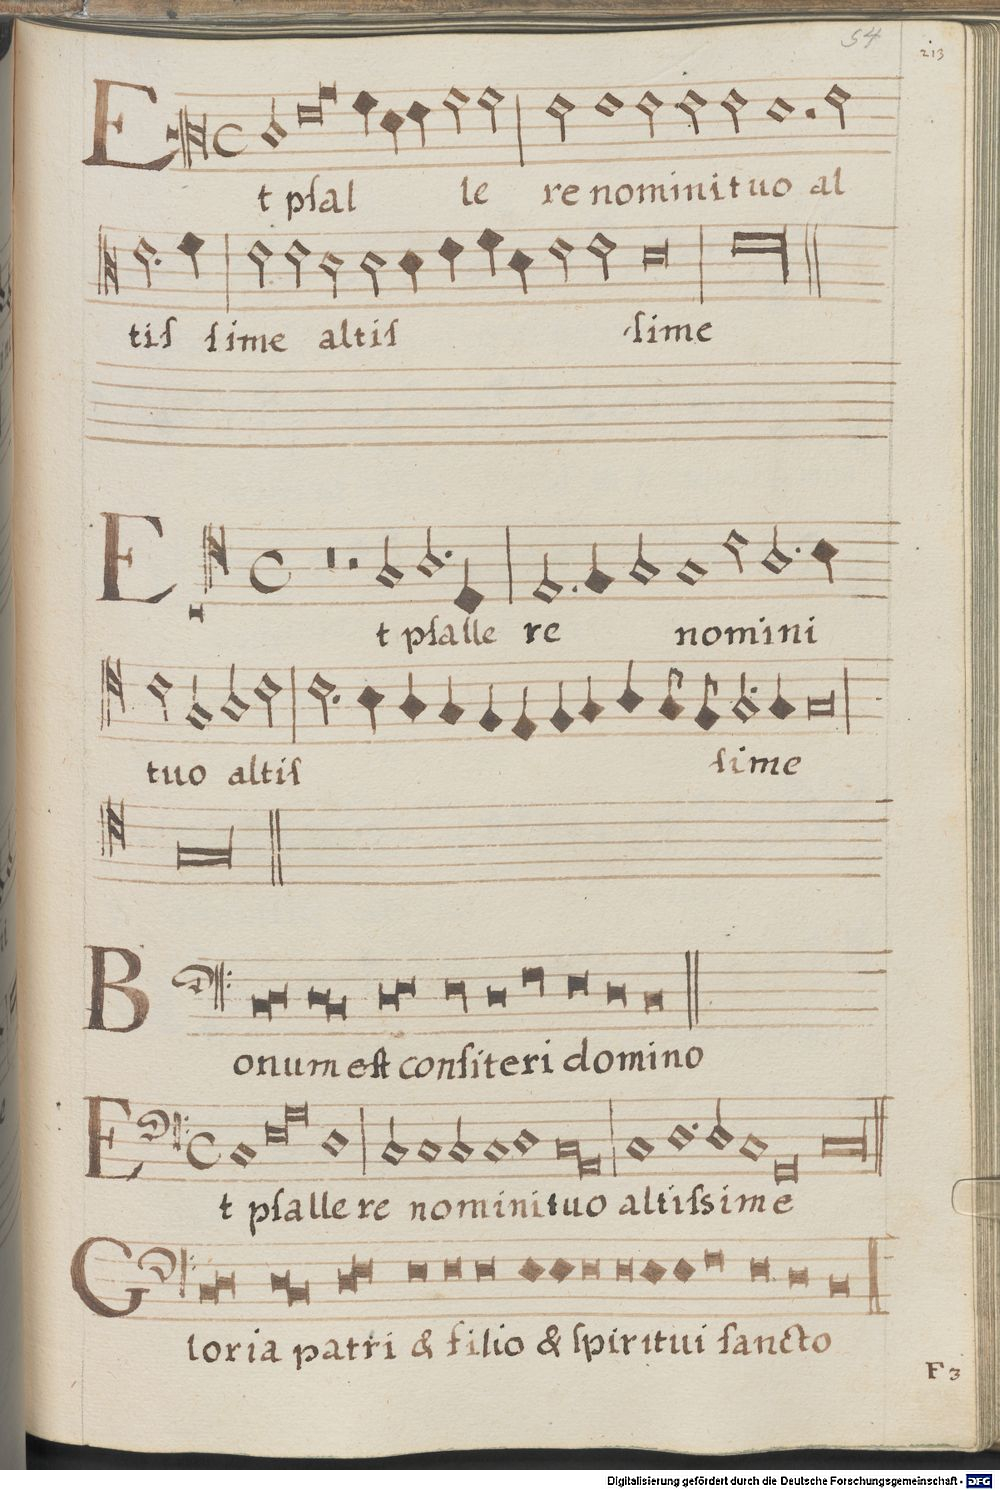 54
213
Et psalle re nomini tuo al
tissime altissime
Et psalle re nomini
tuo altissime
Bonum est confiteri domino
Et psalle re nomini tuo altissime
Gloria patri & filio & spiritui sancto
F 3
Digitalisierung gefördert durch die Deutsche Forschungsgemeinschaft - DFG